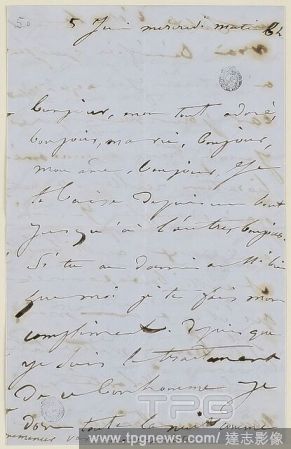 5 Juin mercredi matin
Bonjour, mon tout adoré
bonjour, ma vie, bonjour,
mon âme, bonjour. Je
te baise depuis un bout
jusqu'à l'autre. Bonjour.
Si tu as dormi aussi bien
que moi je te fais mon
compliment. Depuis que
je suis le traitement
de ce bonhomme je
dors toute la nuit comme
TPG
www.tpgnews.com/ 達志影像